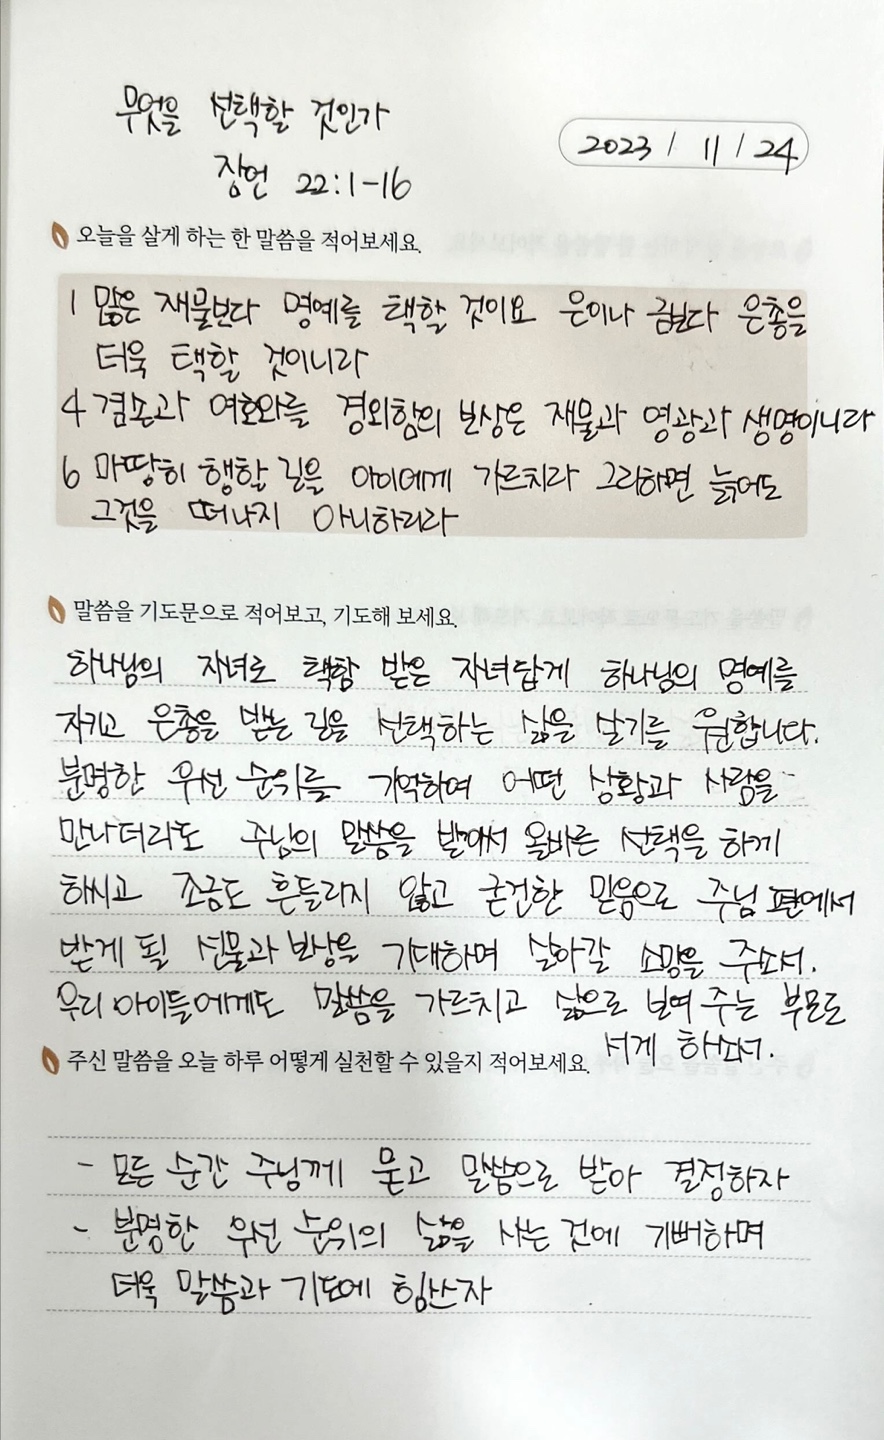 무엇을 선택할 것인가
2023 / 11 / 24
잠언 22:1-16
오늘을 살게 하는 한 말씀을 적어보세요.
1 많은 재물보다 명예를 택할 것이요 은이나 금보다 은총을
더욱 택할 것이니라
4 겸손과 여호와를 경외함의 보상은 재물과 영광과 생명이니라
6 마땅히 행할 길을 아이에게 가르치라 그리하면 늙어도
그것을 떠나지 아니하리라
말씀을 기도문으로 적어보고, 기도해 보세요.
하나님의 자녀로 택함 받은 자녀답게 하나님의 명예를
지키고 은총을 받는 길을 선택하는 삶을 살기를 원합니다.
분명한 우선 순위를 기억하여 어떤 상황과 사람을
만나더라도 주님의 말씀을 받아서 올바른 선택을 하게
하시고 조금도 흔들리지 않고 굳건한 믿음으로 주님 편에서
받게 될 선물과 보상을 기대하며 살아갈 소망을 주소서.
우리 아이들에게도 말씀을 가르치고 삶으로 보여 주는 부모로
서게 하소서.
주신 말씀을 오늘 하루 어떻게 실천할 수 있을지 적어보세요.
- 모든 순간 주님께 묻고 말씀으로 받아 결정하자
- 분명한 우선 순위의 삶을 사는 것에 기뻐하며
더욱 말씀과 기도에 힘쓰자